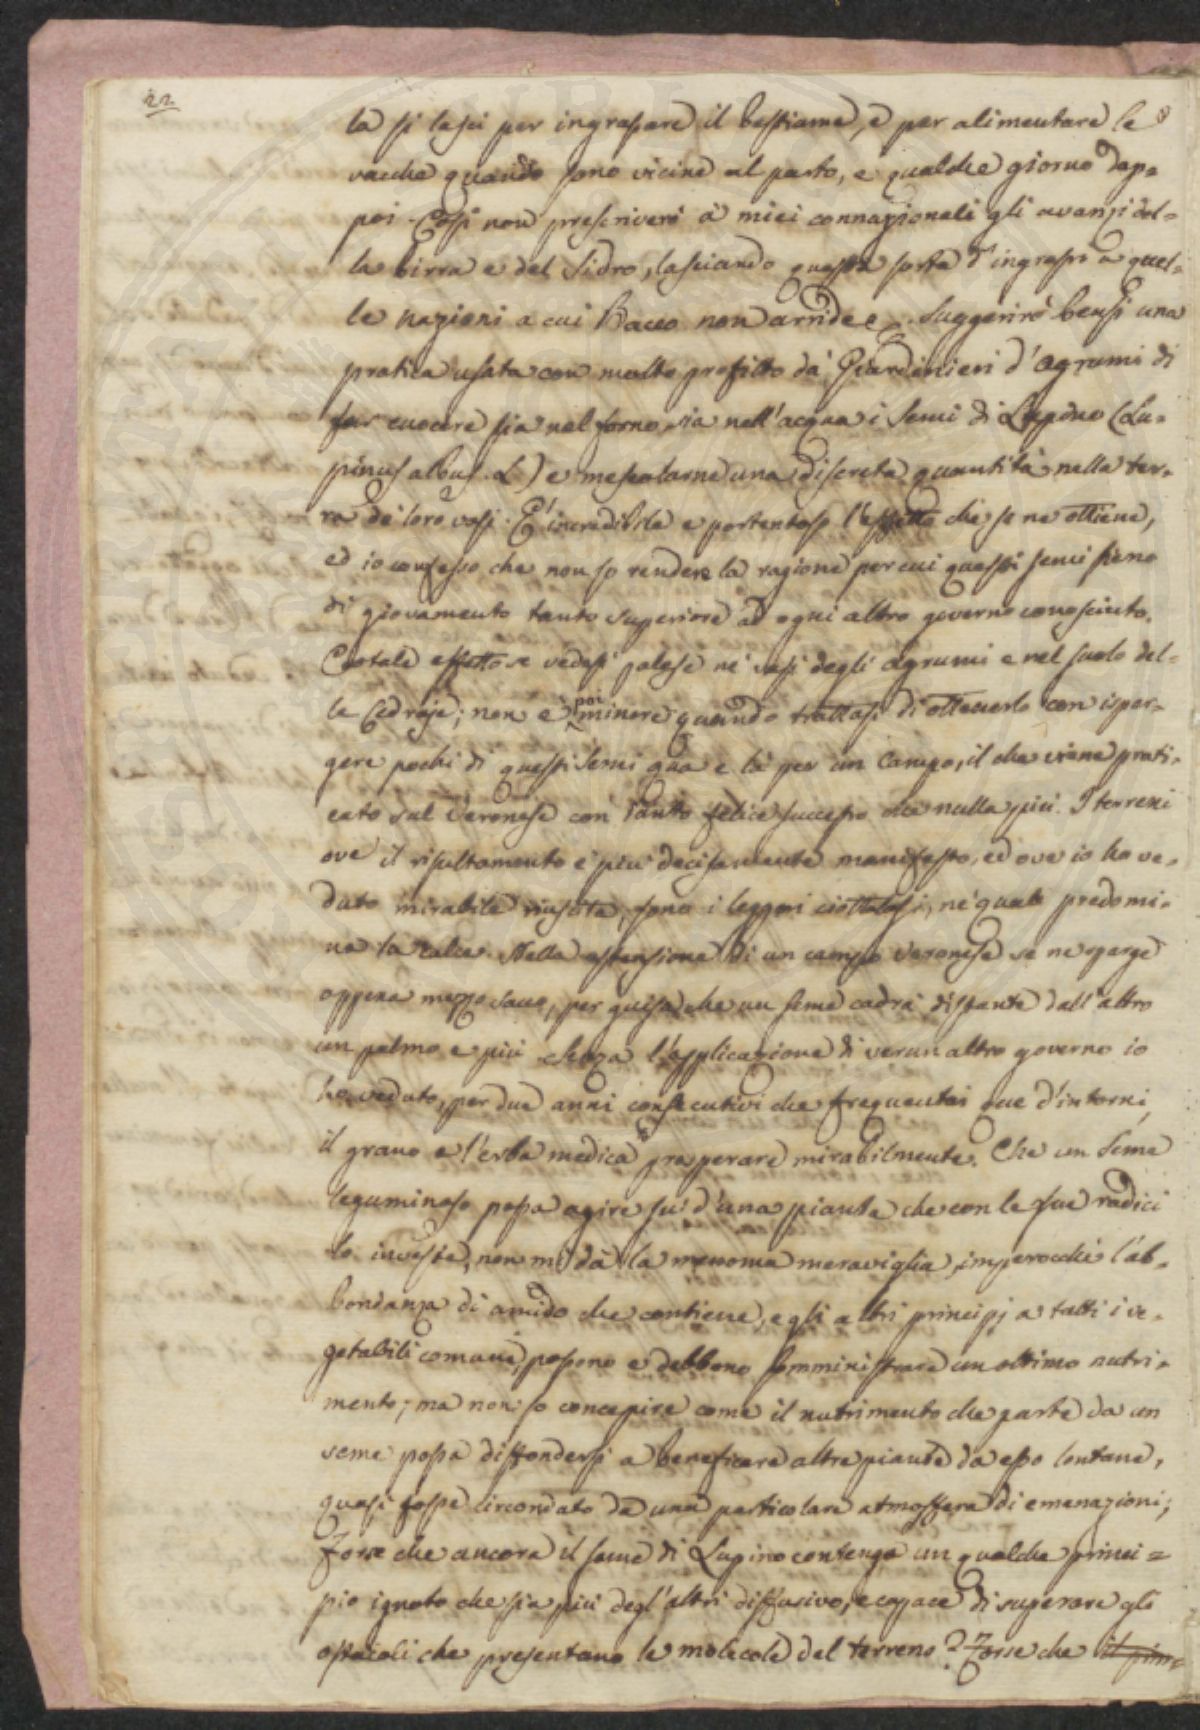 22
la si lasci per ingrassare il bestiame, e per alimentare le
vacche quando sono vicine al parto, e qualche giorno dap=
poi. Così non prescriverò a' miei connazionali gli avanzi del=
la birra e del Sidro, lasciando questa sorta d'ingrassi a quel=
le nazioni a cui Bacco non arride. Suggerirò bensì una
pratica usata con molto profitto da' Giardinieri d'agrumi di
far cuocere sia nel forno, sia nell'acqua i semi di Lupino (Lu=
pinus albus. L.) e mescolarne una discreta quantità nella ter=
ra de' loro vasi. È incredibile e portentoso l'effetto che se ne ottiene,
ed io confesso che non so rendere la ragione per cui questi semi sieno
di giovamento tanto superiore ad ogni altro governo conosciuto.
Cotale effetto se vedesi palese ne' vasi degli agrumi e nel suolo del=
le Cedraje; non è poi minore quando trattasi di ottenerlo con isper=
gere pochi di questi semi qua e là per un campo, il che viene prati=
cato sul Veronese con tanto felice successo che nulla più. I terreni
ove il risultamento è più decisamente manifesto, ed ove io ho ve=
duto mirabile riuscita, sono i leggeri ciottolosi, ne' quali predomi=
na la calce. Nella estensione di un campo Veronese se ne sparge
appena mezzo sacco, per guisa che un seme cadrà distante dall'altro
un palmo e più. Senza l'applicazione di verun altro governo io
ho veduto, per due anni consecutivi che frequentai que' d'intorni,
il grano e l'erba medica prosperare mirabilmente. Che un seme
leguminoso possa agire su d'una pianta che con le sue radici
lo investe, non mi dà la menoma meraviglia, imperocchè l'ab=
bondanza di amido che contiene, e gli altri principj a tutti i ve=
getabili comuni, possono e debbono somministrare un ottimo nutri=
mento; ma non so concepire come il nutrimento che parte da un
seme possa diffondersi a beneficare altre piante da esso lontane,
quasi fosse circondato da una particolare atmosfera di emanazioni;
Forse che ancora il seme di Lupino contenga un qualche princi=
pio ignoto che sia più degl'altri diffusivo, e capace di superare gli
ostacoli che presentano le molecole del terreno? Forse che il prin=